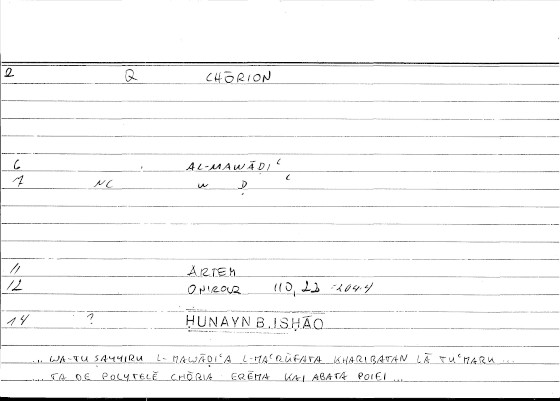 2 Q CHŌRION
6 AL-MAWĀḌIʿ
7 NC W Ḍ ʿ
11 ARTEM
12 ONIROCR 110, 23 -204.4
14 ? ḤUNAYN B. ISḤĀQ
... WA-TUṢAYYIRU L-MAWĀḌIʿA L-MAʿRŪFATA KHARIBATAN LĀ TUʿMARU ...
... TA DE POLYTELĒ CHŌRIA ERĒMA KAI ABATA POIEI ...